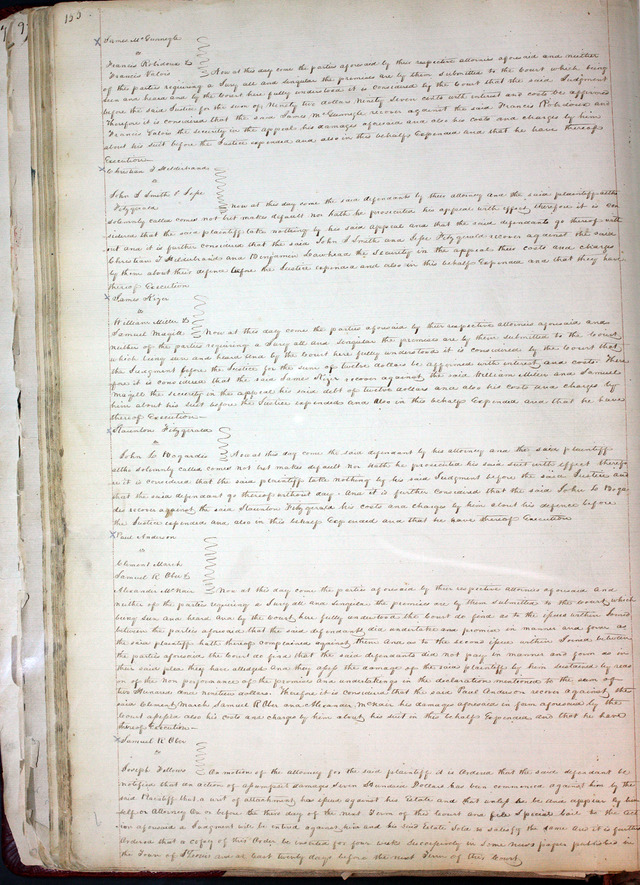 150
James McGunnegle
vs
Francis Robidoux &
Francis Valois Now at this day come the parties aforesaid by their respective attornies aforesaid and neither
of the parties requiring a Jury all and singular the premises are by them submitted to the Court which being
seen and heard and by the Court here fully understood it is considered by the Court that the said Judgment
before the said Justice for the sum of Ninety two dollars Ninety Seven cents with interest and costs be affirmed
Therefore it is considered that the said James McGunnegle recover against the said Francis Robidoux and
Francis Valois the security in the appeal his damages aforesaid and also his costs and charges by him
about his suit before the Justice expended and also in this behalf Expended and that he have thereof
Execution
Christian T Hildebrand
vs
John S Smith & Jesse
Fitzgerald Now at this day come the said defendants by their attorney and the said plaintiff altho
solemnly called comes not but makes default nor hath he prosecuted his appeal with effect, therefore it is con
sidered that the said plaintiff take nothing by his said Appeal and that the said defendants go thereof with
out and it is further considered that the said John S Smith and Jesse Fitzgerald recover against the said
Christian T Hildebrand and Benjamin Lawhead the Security in the appeal their costs and charges
by them about their defence before the Justice expended and also in this behalf Expended and that they have
thereof Execution
James Kizer
vs
William Miller &
Samuel Magill Now at this day come the parties aforesaid by their respective attornies aforesaid and
neither of the parties requiring a Jury all and Singular the premises are by them Submitted to the Court
which being seen and heard and by the Court here fully understood it is considered by the Court that
the Judgment before the Justice for the sum of twelve dollars be affirmed with interest and costs. There
fore it is considered that the said James Kizer recover against the said William Miller and Samuel
Magill the security in the appeal his said debt of twelve dollars and also his costs and charges by
him about his suit before the Justice expended and Also in this behalf Expended and that he have
thereof Execution
Staunton Fitzgerald
vs
John Lo Bogardis Now at this day come the said defendant by his attorney and the said plaintiff
altho solemnly called comes not but makes default nor hath he prosecuted his said suit with effect therefo
re it is considered that the said plaintiff take nothing by his said Judgment before the said Justice and
that the said defendant go thereof without day. And it is further considered that the said John Lo Boga
dis recover against the said Staunton Fitzgerald his costs and charges by him about his defence before
the Justice expended and also in this behalf Expended and that he have thereof Execution
Paul Anderson
vs
Clement March
Samuel R Ober &
Alexander McNair Now at this day come the parties aforesaid by their respective attornies aforesaid and
neither of the parties requiring a Jury all and Singular the premises are by them submitted to the Court, which
being seen and heard and by the Court here fully understood the Court do find as to the issues within Joined
between the parties aforesaid, that the said defendants did undertake and promise in manner and form as
the said plaintiff hath thereof complained against them and as to the second issue within Joined between
the parties aforesaid the Court do find that the said defendants did not pay in manner and form as in
their said plea they have alledged And they assess the damage of the said plaintiff by him sustained by reas
on of the Non performance of the promises and undertakings in the declaration mentioned to the sum of
two Hundred and nineteen dollars. Therefore it is considered that the said Paul Anderson recover against the
said Clement March Samuel R Ober and Alexander McNair his damages aforesaid in form aforesaid by the
Court assessed also his Costs and charges by him about his suit in this behalf Expended and that he have
thereof Execution
Samuel R Ober
vs
Joseph Fellows On motion of the attorney for the said plaintiff it is Ordered that the said defendant be
notified that an action of assumpsit damages Seven Hundred Dollars has been commenced against him by the
said Plaintiff that a writ of attachment has issued against his Estate and that unless he be and appear by him
self or Attorney On or before the third day of the next Term of this Court and file Special bail to the act
ion aforesaid a Judgment will be entered against him and his said Estate Sold to Satisfy the Same And it is further
Ordered that a copy of this Order be inserted for four weeks Successively in Some news paper published in
the Town of St Louis and at least twenty days before the next Term of this Court